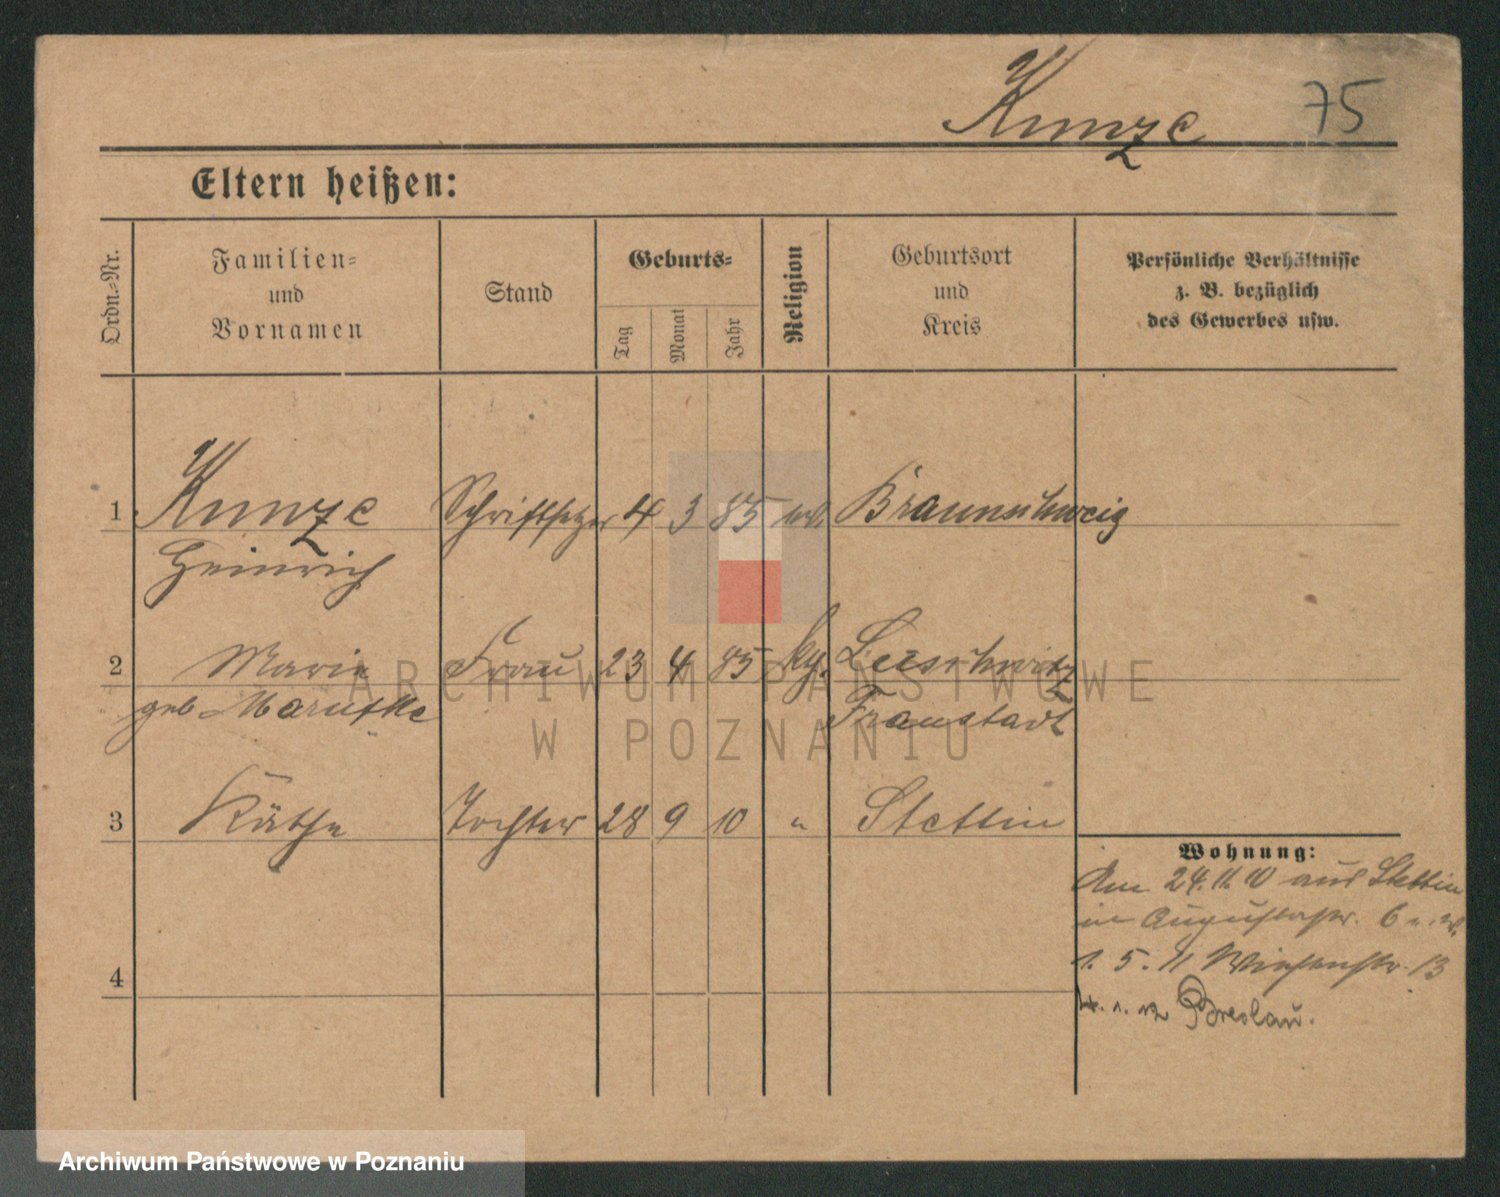 Kunze 75
Eltern heißen:
Ordn.-Nr.
Familien-
und
Vornamen
Stand
Geburts-
Tag
Monat
Jahr
Religion
Geburtsort
und
Kreis
Persönliche Verhältnisse
z. B. bezüglich
des Gewerbes usw.
1 Kunze Schriftsetzer 4 3 85 ev. Braunschweig
Heinrich
2 Marie Frau 23 4 85 kg.
geb Fraustadt
3 Käthe Tochter 28 9 10 " Stettin
Wohnung:
Am 24.11.10 aus Stettin
in Augustastr. 6
1. 5. 11 Wiesenstr. 13
Breslau.
4
ARCHIWUM PAŃSTWOWE
W POZNANIU
Archiwum Państwowe w Poznaniu